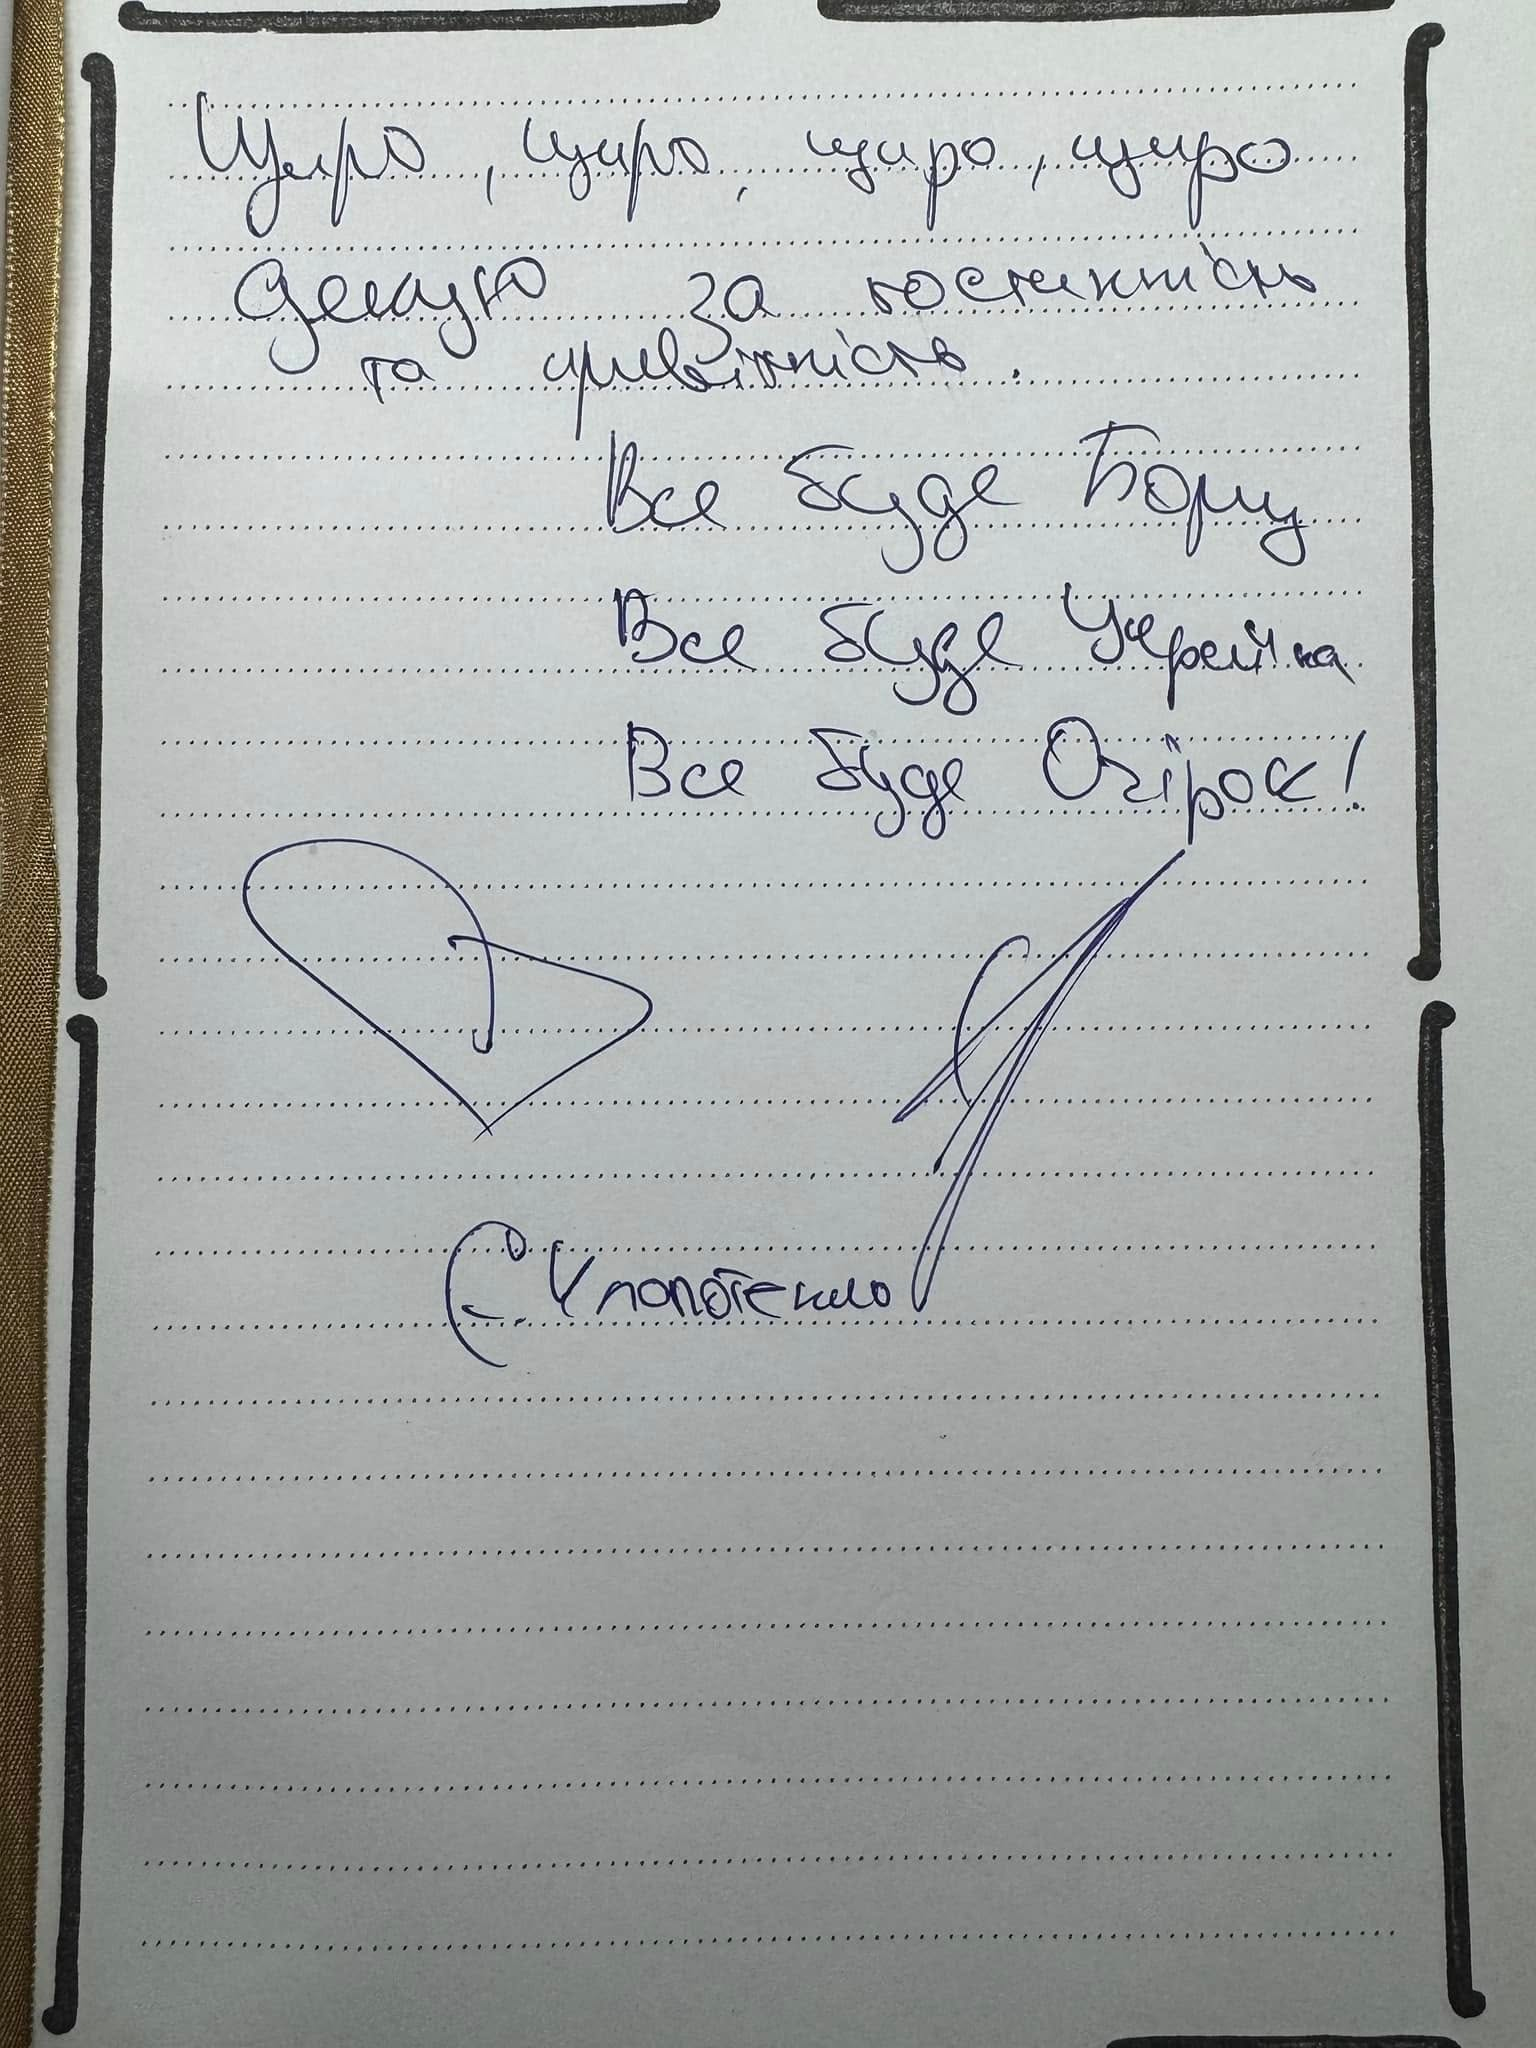 Щиро, щиро, щиро, щиро
дякую за гостинність
та привітність.
Все буде Борщ
Все буде Україна
Все буде Огірок!
Є. Клопотенко